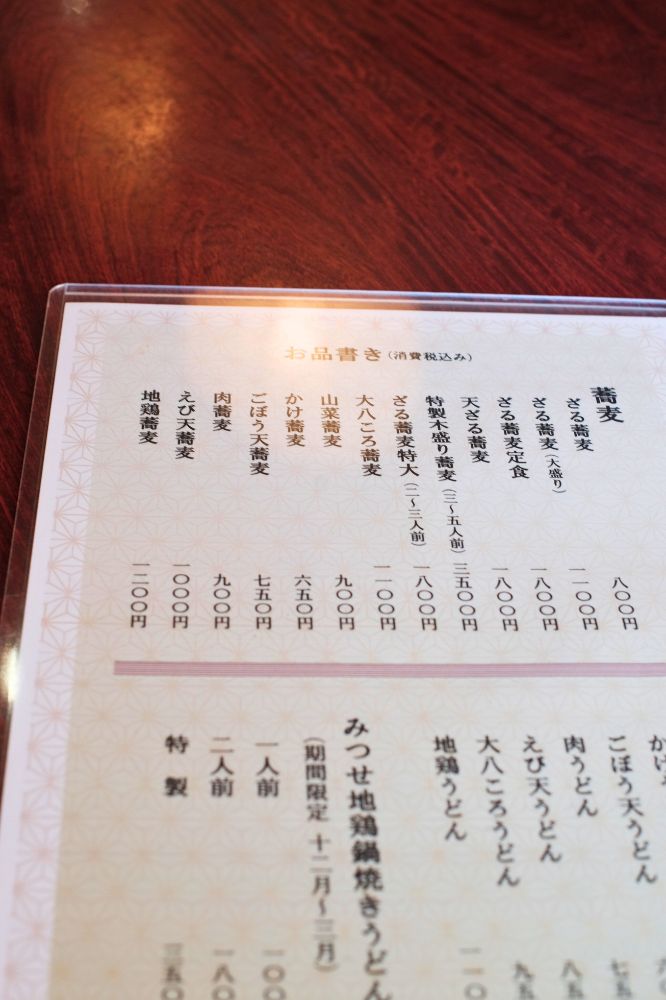 お品書き(消費税込み)
蕎麦
ざる蕎麦 八〇〇円
ざる蕎麦(大盛り) 一一〇〇円
ざる蕎麦定食 一八〇〇円
天ざる蕎麦 一八〇〇円
特製木盛り蕎麦(三〜五人前) 三五〇〇円
ざる蕎麦特大(二〜三人前) 一八〇〇円
大八ころ蕎麦 一一〇〇円
山菜蕎麦 九〇〇円
かけ蕎麦 六五〇円
ごぼう天蕎麦 七五〇円
肉蕎麦 九〇〇円
えび天蕎麦 一〇〇〇円
地鶏蕎麦 一二〇〇円
かけ
ごぼう天うどん
肉うどん
えび天うどん
大八ころうどん
地鶏うどん
みつせ地鶏鍋焼きうどん
(期間限定 十二月〜三月)
一人前
二人前
特製